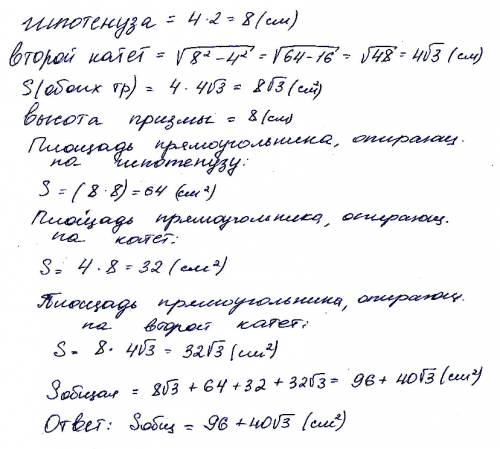 гипотенуза = 4·2 = 8 (см)
второй катет = √8²-4² = √64-16 = √48 = 4√3 (см)
S(обоих тр) = 4·4√3 = 8√3 (см²)
высота призмы = 8 (см)
Площадь прямоугольника, опирающ.
на гипотенузу:
S = (8·8) = 64 (см²)
Площадь прямоугольника, опирающ.
на катет:
S = 4·8 = 32 (см²)
Площадь прямоугольника, опирающ.
на второй катет:
S = 8·4√3 = 32√3 (см²)
Sобщая = 8√3 + 64 + 32 + 32√3 = 96 + 40√3 (см²)
Ответ: Sобщ = 96 + 40√3 (см²)